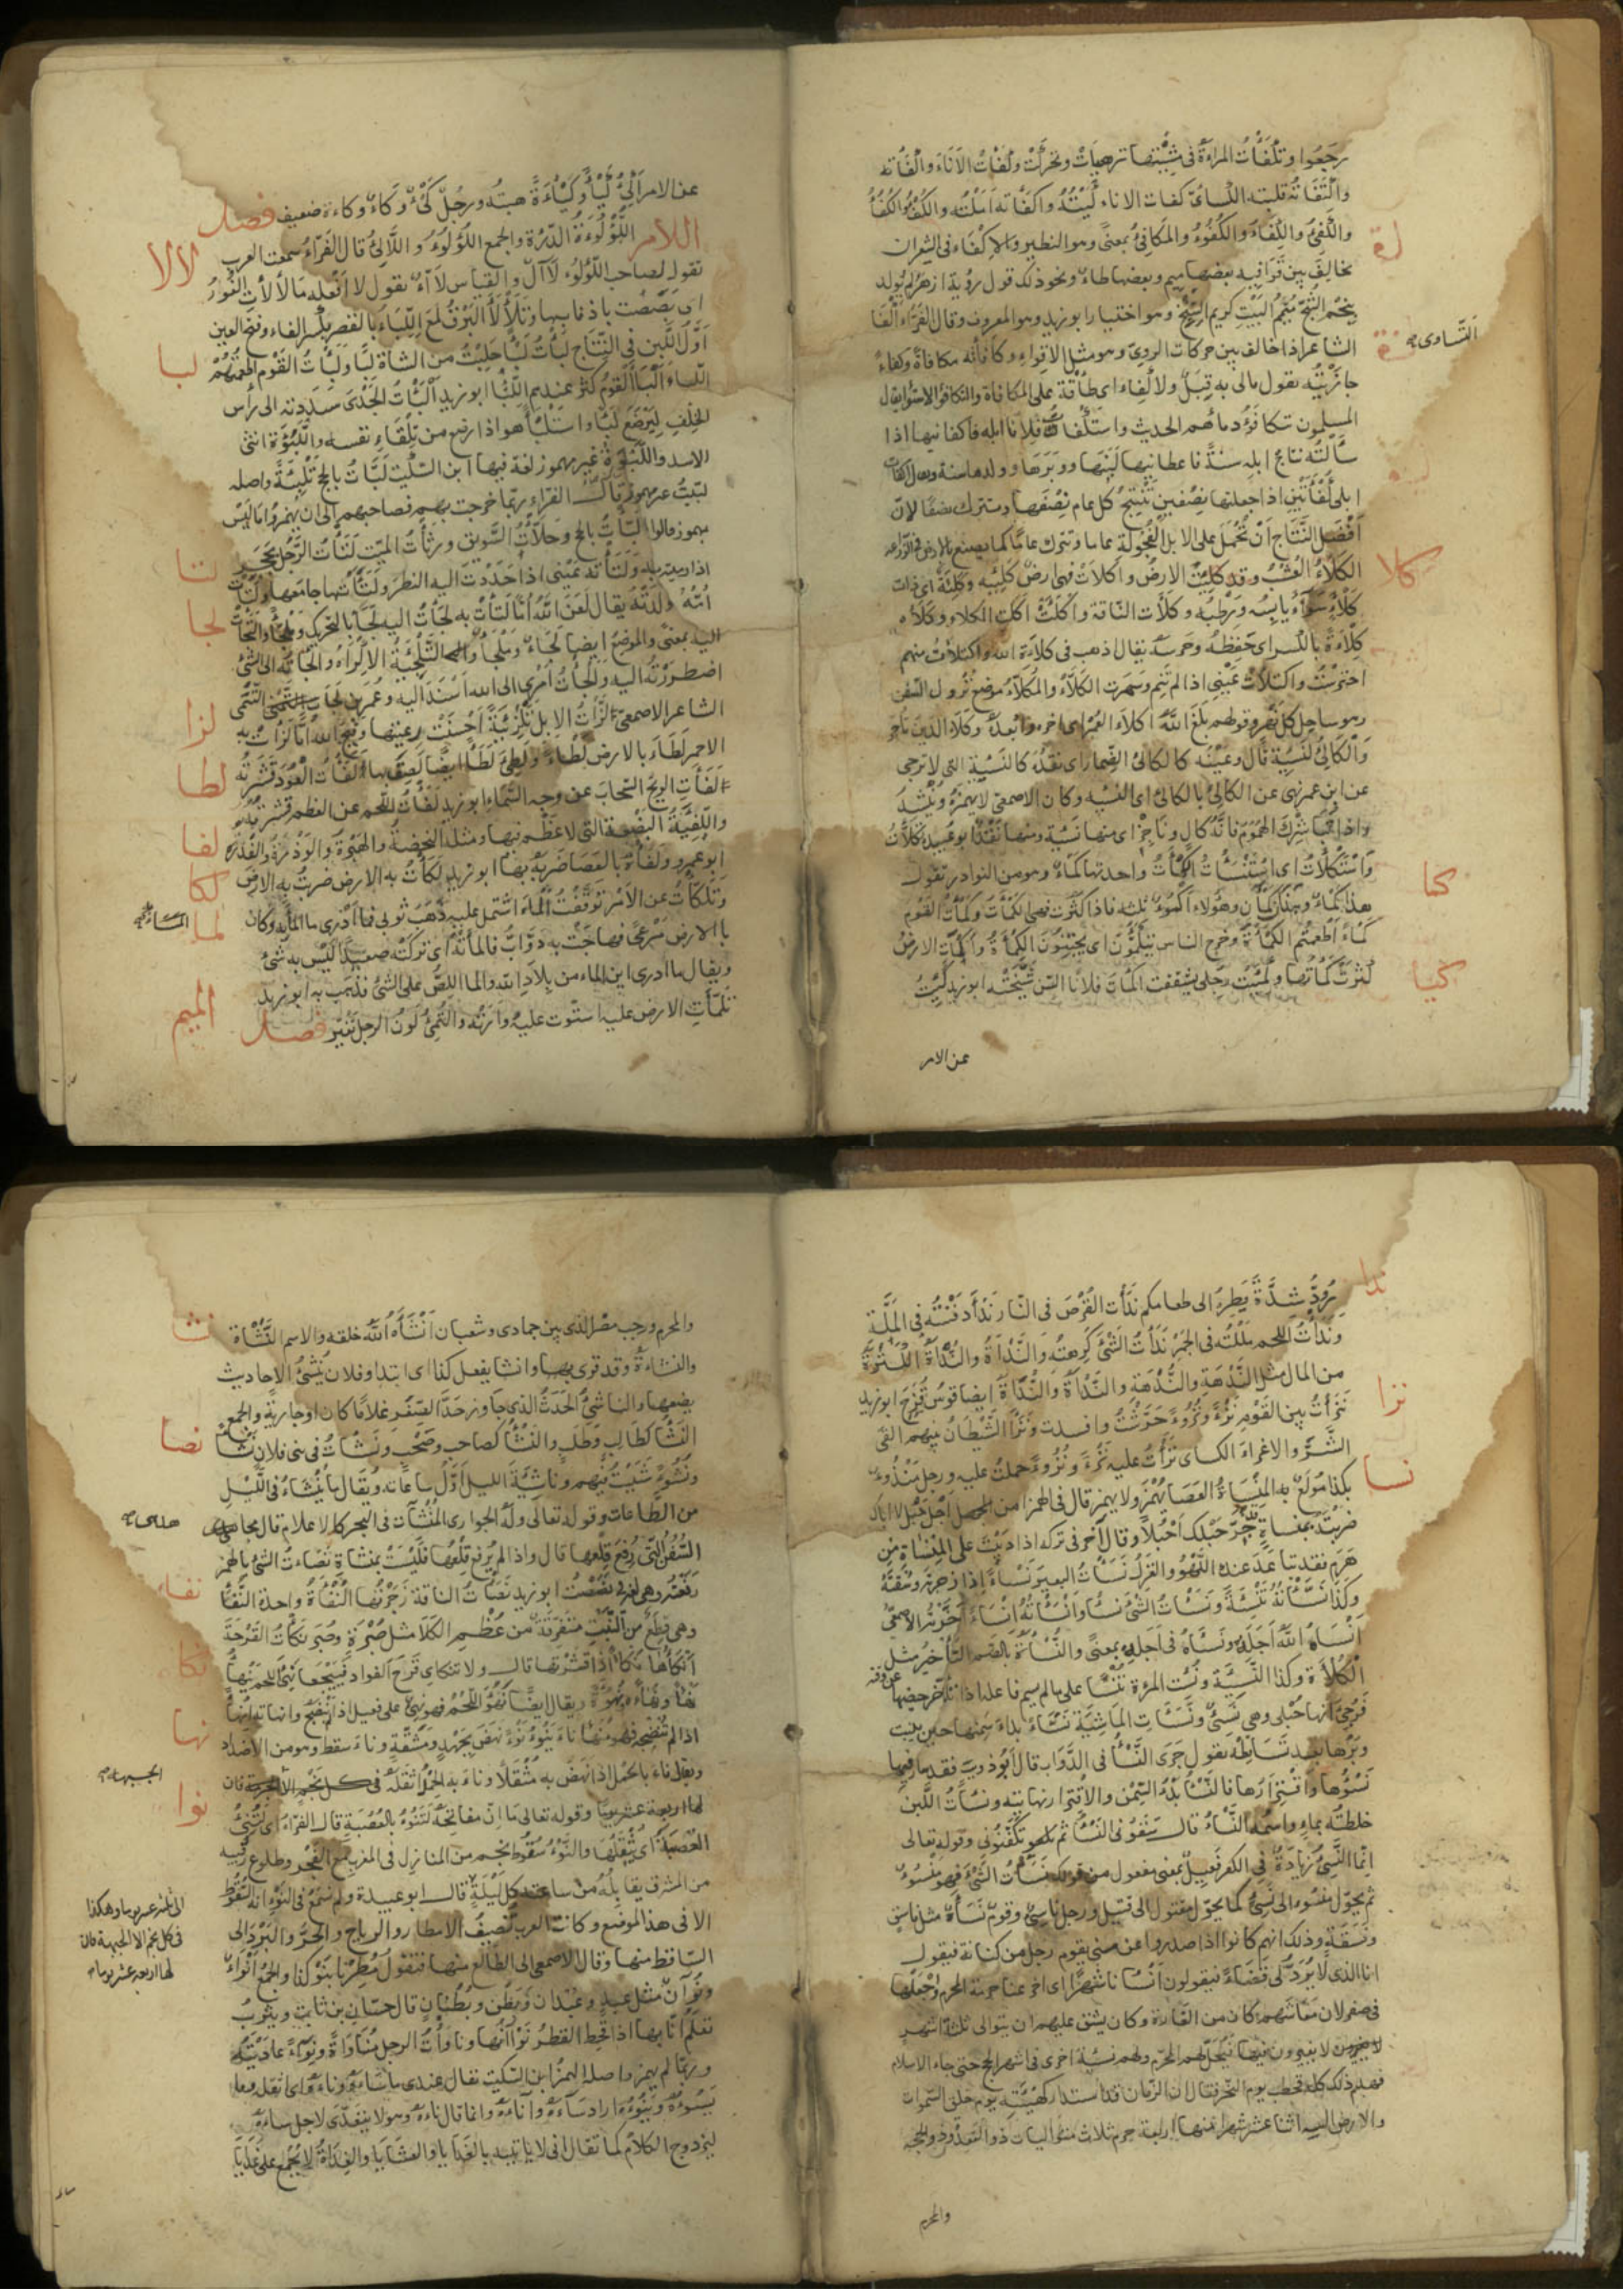 رجعوا وتكفّأت المراءة في مشيتها ترهيأت وتحركت وكفأت الاناء واكفأته
واكتفأته قلبته الكسائي كفأت الاناء كببته واكفأته املته والكفؤ والكفؤ
والكفئ والكفاء والكفوء والمكافئ بمعنى وهو النظير والاكفاء في الشعر ان
يخالف بين قوافيه بعضها ميم وبعضها طاء ونحو ذلك قول رؤبة ازهر لم يولد
بنجم الشح ميمم البيت كريم السنخ وهو اختيار ابو زيد وهو المعروف وقال الفراء اكفأ
التساوى
الشاعر اذا خالف بين حركات الروي وهو مثل الاقواء وكافأته مكافاة وكفاء
جازيته تقول مالي به قبل ولا كفاء اى طاقة على المكافاة والتكافؤ الاستواء يقال
المسلمون تتكافؤ دماءهم الحديث واستكفأت فلانا ابله فاكفأنيها اذا
سألته نتاج ابله سنة فاعطانيها لبنها ووبرها وولدها سنة
ابلى كفأتين اذا جعلتها نصفين تنتج كل عام نصفها وتترك نصفا لان
افضل النتاج ان تحمل على الابل الفحولة عاما وتترك عاما كما يصنع بالارض في الزراعة
كلا
الكلأ العشب وقد كلئت الارض واكلأت فهى ارض كلئة ومكلئة اى ذات
كلأ سواء يابسه ورطبه وكلأت الناقة واكلأت اكلت الكلاء وكلأه
كلاءة بالكسر اى حفظه وحرسه يقال اذهب في كلاءة الله واكتلأت منهم
احترست واكتلأت عيني اذا لم تنم وسهرت الكلّاء والمكلأ موضع ترفأ فيه السفن
وهو ساحل كل نهر وقولهم بلغ الله بك اكلأ العمر اى اخره وابعده وكلأ الدين تأخر
والكالئ النسيئة قال وعينه كالكالئ الضمار اى نقده كالنسيئة التي لا ترجى
عن ابن عمر نهى عن الكالئ بالكالئ اى النسيه وكان الاصمعي لا يهمزه وينشد
واذا تباشرك الهموم فانه كال وناجز اى منها نسيئة ومنها نقد ابو عبيدة تكلأت
كما
واستكلأت اى استنسأت الكمأة واحدتها كمء وهو من النوادر تقول
هذا كمء وهذان كمآن وهؤلاء اكمؤ ثلثة فاذا كثرت فهى الكمأة وكمأت القوم
كمأ اطعمتهم الكمأة وخرج الناس يتكمؤن اى يجتنون الكمأة واكمأت الارض
كيا
كثرت كمأتها وكمئت رجلي تشققت اكمأت فلانا السن شيخته ابو زيد كئت
عن الامر
عن الامر اكئ كيأ وكيأة هبته ورجل كئ وكاء وكاءة ضعيف فصل
اللام اللؤلوءة الدرة والجمع اللؤلؤ واللآلئ قال الفراء سمعت العرب
لالا
تقول لصاحب اللؤلؤ لآل والقياس لآء تقول لا افعله ما لألأت الفور
اى بصبصت باذنابها وتلألأ البرق لمع اللبأ بالقصر بكسر الفاء وفتح العين
لبا
اول اللبن في النتاج لبأت لبأ حلبت من الشاة لبأ ولبأت القوم اطعمتهم
اللبأ والبأ القوم كثر عندهم اللبأ ابو زيد البأت الجدى سددته الى رأس
الخلف ليرضع لبأ واستلبأ هو اذا رضع من تلقاء نفسه واللبؤة انثى
الاسد واللبوة غير مهموز لغة فيها ابن السكيت لبأت بالحج تلبئة واصله
لبيت غير مهموز قال الفراء ربما خرجت بهم فصاحتهم الى ان يهمزوا ما ليس
بمهموز قالوا لبأت بالحج وحلأت السويق ورثأت الميت لتأت الرجل بحجر
لتا
اذا رميته به ولتأته بعيني اذا حددت اليه النظر ولتأتها جامعها ولتأت
امه ولدته يقال لعن الله اما لتأت به لجأت اليه لجأ بالتحريك وملجأ والتجأت
لجا
اليه بمعنى والموضع ايضا لجأ وملجأ والتلجئة الاكراه والجأته الى الشئ
اضطررته اليه والجأت امرى الى الله اسندت اليه وعمر بن لجأ التيمى
لزا
الشاعر الاصمعي لزأت الابل تلزئة احسنت رعيتها وقبح الله اما لزأت به
لطا
الاحمر لطأ بالارض لطأ ولطئ لطأ ايضا لصق بها لفأت العود قشرته
لفأت الريح السحاب عن وجه السماء ابو زيد لفأت اللحم عن العظم قشرته
لفا
واللفيئة البضعة التي لا عظم فيها ومثله النحضة والهبرة والوذرة والفدرة
لكا
ابو عمرو ولفأه بالعصا ضربه بها ابو زيد لكأت به الارض ضربت به الارض
وتلكأت عن الامر توقفت
لما
المأ اشتمل عليه ذهب ثوبى فما ادرى ما المأ به وكان
بالارض مرعى فهاجت به دواب فالمأته اى تركته صعيدا ليس به شئ
ويقال ما ادرى اين الماء من بلاد الله والمأ اللص على الشئ فذهب به ابو زيد
تلمأت الارض عليه استوت عليه وارته والتمئ لون الرجل تغير فصل الميم
ندا
برود شدة يطر الى طعامكم ندأت القرص في النار ندأ دفنته في الملة
وندأت اللحم مللته في الجمر ندأت الشئ كرهته والندأة والندأة الكثرة
من المال مثل الندهة والندهة والندأة والندأة ايضا قوس قزح ابو زيد
نزا
نزأت بين القوم نزأ ونزوء حرشت وافسدت ونزأ الشيطان بينهم القى
الشر والاغراء الكساى نزأت عليه نزءً ونزوءً حملت عليه ورجل منزوء
نسا
بكذا مولع به المنساة العصا يهمز ولا يهمز قال في الهمز امن اجل حبل لا اباك
ضربته بمنساة قد جر حبلك احبلا وقال آخر في تركه اذا دببت على المنساة من
هرم فقد تباعد عنك اللهو والغزل نسأت البعير نسأ اذا زجرته وسقته
وكذا نسأته تنسئة ونسأت الشئ نسأ وانسأته انساء اخرته الاصمعي
انساه الله اجله ونسأه في اجله بمعنى والنسأة بالضم التأخير مثل
الكلأة وكذا النسيئة ونسئت المرءة تنسأ على ما لم يسم فاعله اذا تأخر حيضها عن وقته
فرجى انها حبلى وهي نسئ ونسأت الماشية نسأ بداء سمنها حين ينبت
وبرها بعد تساقطه يقول جرى النسأ في الدواب قال ابو ذؤيب فقد مار فيها
نسؤها واقترارها فالنسأ بدء السمن والاقترار نهايته ونسأت اللبن
خلطته بماء واسمه النسأ قال سقوني النسأ ثم تكنفوني وقوله تعالى
انما النسئ زيادة في الكفر فعيل بمعنى مفعول من قولك نسأت الشئ فهو منسوء
ثم يحول منسوء الى نسئ كما يحول مقتول الى قتيل ورجل ناسئ وقوم نسأة مثل فاسق
وفسقة وذلك انهم كانوا اذا صدروا عن منى يقوم رجل من كنانة فيقول
انا الذى لا يرد لى قضاء فيقولون انسئنا شهرا اى اخر عنا حرمة المحرم واجعلها
في صفر لان معاشهم كان من الغارة وكان يشق عليهم ان يتوالى ثلثة اشهر
لا يغيرون فيها فيحل لهم المحرم ولهم نسئة اخرى في اشهر الحج حتى جاء الاسلام
فهدم ذلك كله فخطب يوم النحر فقال ان الزمان قد استدار كهيئته يوم خلق السموات
والارض السنة اثنا عشر شهرا منها اربعة حرم ثلاث متواليات ذو القعدة وذو الحجة
والمحرم
والمحرم ورجب مضر الذى بين جمادى وشعبان انشأه الله خلقه والاسم النشأة
نشا
والنشاءة وقد قرئ بهما وانشأ يفعل كذا اى ابتدا وفلان ينشئ الاحاديث
يضعها والناشئ الحدث الذى جاوز حد الصغر غلاما كان او جارية والجمع
النشأ كطالب وطلب والنشأ كصاحب وصحب ونشأت في بنى فلان نشأ
نصا
ونشوء شببت فيهم وناشئة الليل اول ساعاته ويقال ما ينشاء في الليل
من الطاعات وقوله تعالى وله الجوارى المنشآت في البحر كالاعلام قال مجاهد هى
السفن التي رفع قلعها قال واذا لم يرفع قلعها فليست بمنشاة نصاءت الشئ بالهمز
رفعته وهى لغة في نصصت ابو زيد نصأت الناقة زجرتها النفأة واحدة النفأ
نفاء
وهى قطع من النبت متفرقة من عظم الكلأ مثل صبرة وصبر نكأت القرحة
نكاء
انكأها نكأ اذا قشرتها قال ولا تنكاى قرح الفواد فييجعا نهئ اللحم نهأ
نهأ ونهاءة ونهوة ويقال ايضا نهؤ اللحم فهو نهئ على فعيل اذا لم ينضج وانهأته انهاء
نهيا
اذا لم تنضجه فهو منهأ ناء ينوء نوء نهض بجهد ومشقة وناء سقط وهو من الاضداد
الجبهة
ويقال ناء بالحمل اذا نهض به مثقلا وناء به الحمل اثقله في كل نجم الا الجبهة فان
نوا
لها اربعة عشر يوما وقوله تعالى ما ان مفاتحه لتنوء بالعصبة قال الفراء اى لتنئ
العصبة اى تثقلها والنوء سقوط نجم من المنازل في المغرب مع الفجر وطلوع رقيبه
من المشرق يقابله من ساعته كل ليلة قال ابو عبيدة ولم نسمع في النوء انه السقوط
الى ثلثة عشر يوما وهكذا
في كل نجم الا الجبهة فان
لها اربعة عشر يوما
الا في هذا الموضع وكانت العرب تضيف الامطار والرياح والحر والبرد الى
الساقط منها وقال الاصمعي الى الطالع منها فتقول مطرنا بنوء كذا والجمع انواء
ونوآن مثل عبد وعبدان وبطن وبطنان قال حسان بن ثابت ويثرب
تعلم انا بها اذا قحط القطر نوآنها وناوأت الرجل مناواة ونواء عاديته
وربما لم يهمز واصله الهمز ابن السكيت يقال عندى ما ساءه وناءه اى اثقله وما
يسوءه وينوءه اراد ساءه واناءه وانما قال ناءه وهو لا يتعدى لاجل ساءه
ليزدوج الكلام كما يقال انى لاياتيه بالغدايا والعشايا والغداة لا يجمع على غدايا